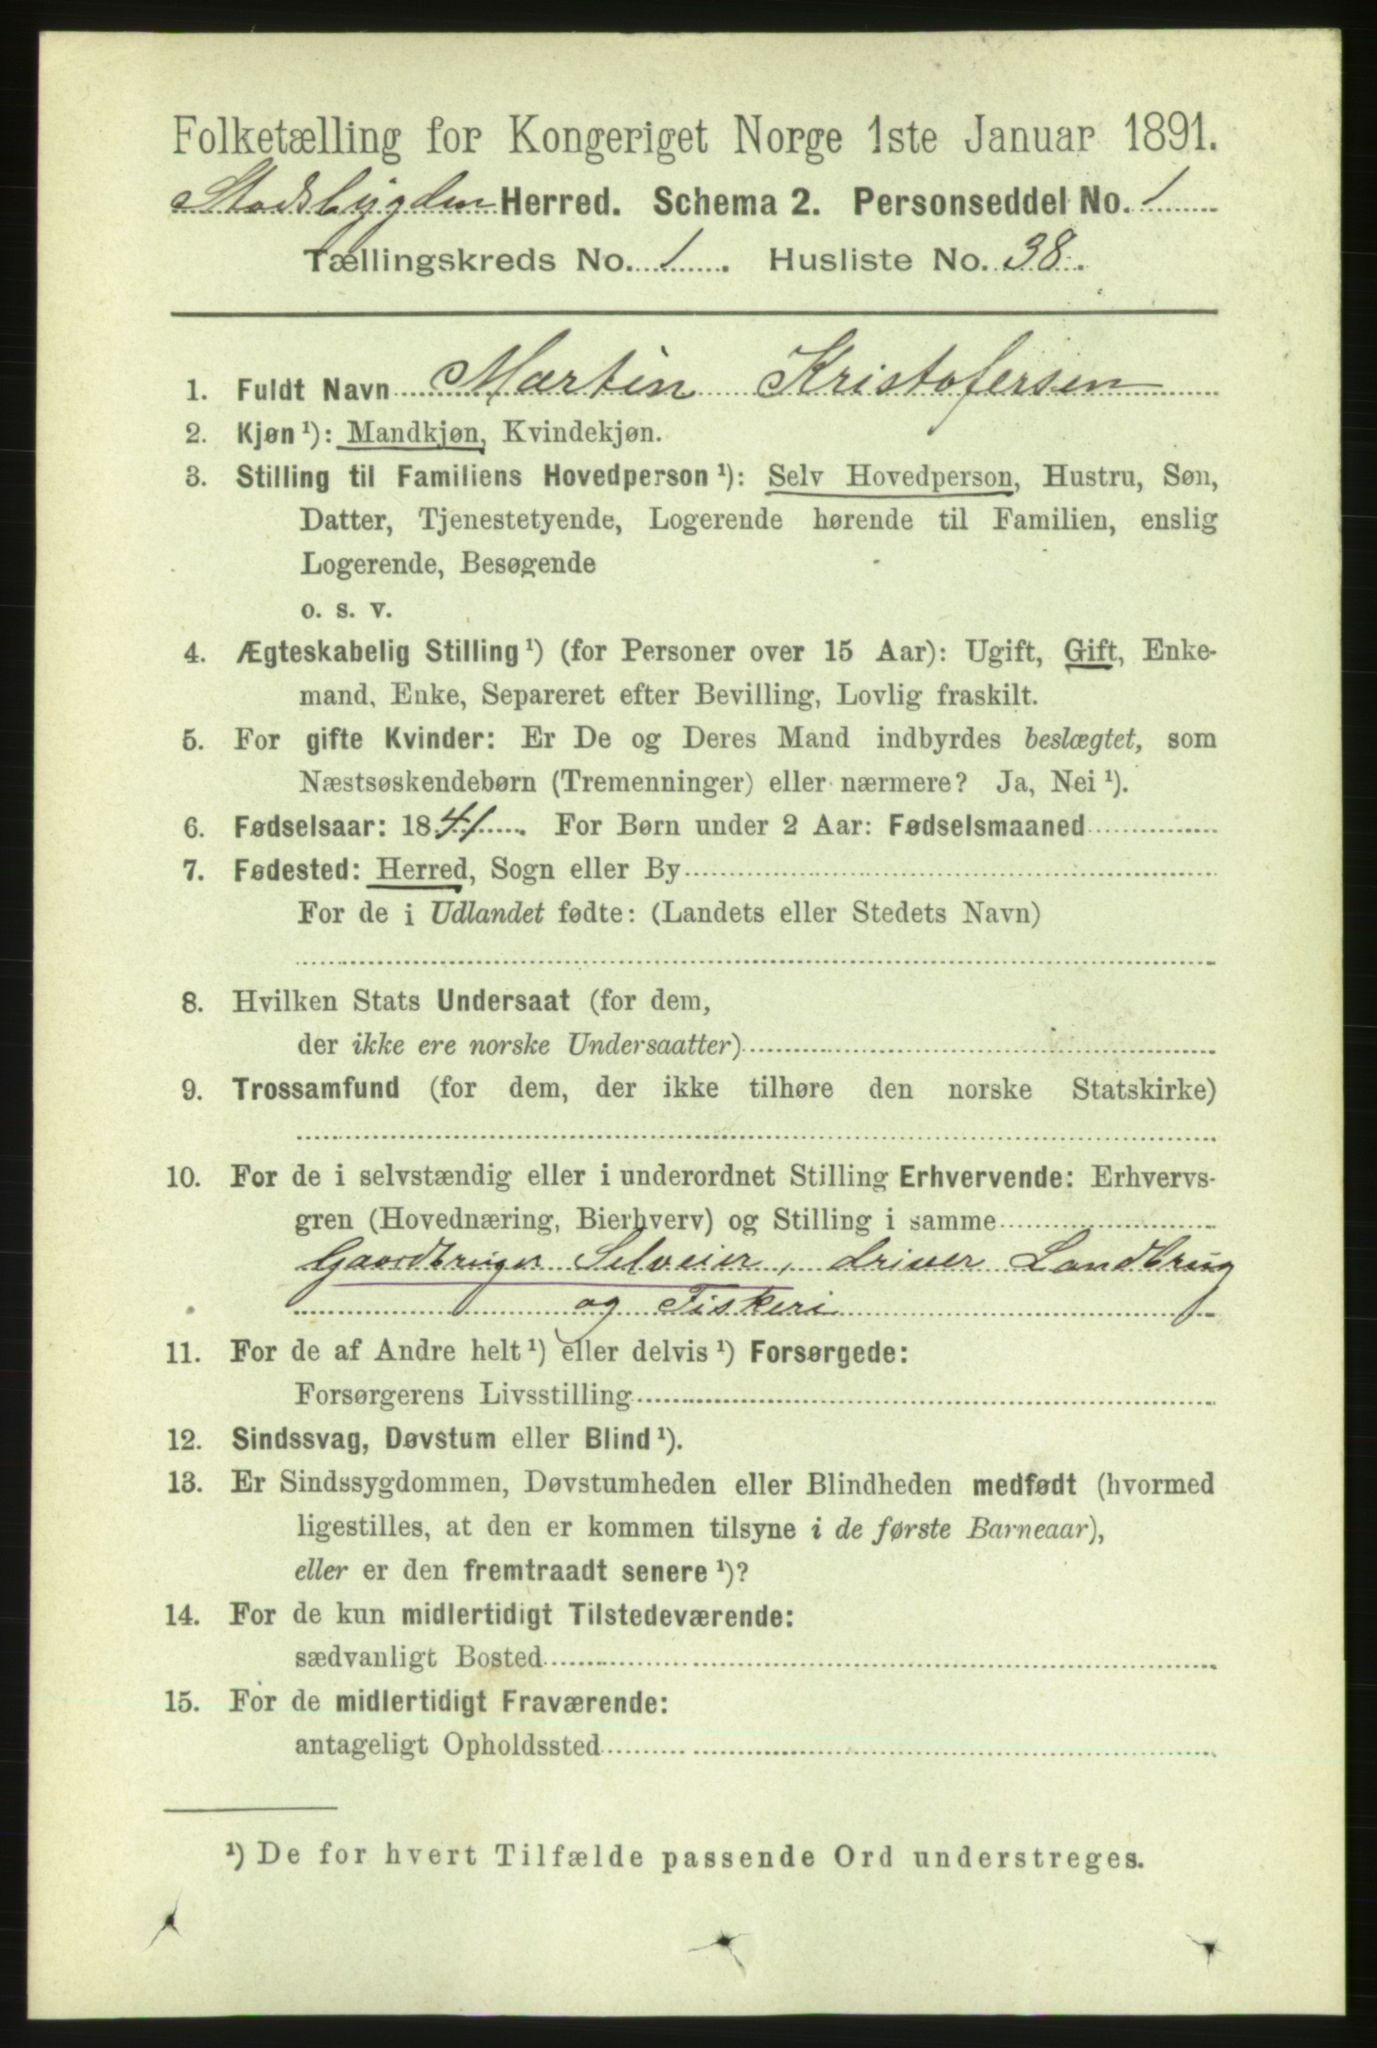 Folketælling for Kongeriget Norge 1ste Januar 1891.
Stadsbygden Herred. Schema 2. Personseddel No. 1
Tællingskreds No. 1. Husliste No. 38.
1. Fuldt Navn Martin Kristofersen
2. Kjøn¹): Mandkjøn, Kvindekjøn.
3. Stilling til Familiens Hovedperson¹): Selv Hovedperson, Hustru, Søn,
Datter, Tjenestetyende, Logerende hørende til Familien, enslig
Logerende, Besøgende
o. s. v.
4. Ægteskabelig Stilling¹) (for Personer over 15 Aar): Ugift, Gift, Enke-
mand, Enke, Separeret efter Bevilling, Lovlig fraskilt.
5. For gifte Kvinder: Er De og Deres Mand indbyrdes beslægtet, som
Næstsøskendebørn (Tremenninger) eller nærmere? Ja, Nei¹).
6. Fødselsaar: 1841. For Børn under 2 Aar: Fødselsmaaned
7. Fødested: Herred, Sogn eller By
For de i Udlandet fødte: (Landets eller Stedets Navn)
8. Hvilken Stats Undersaat (for dem,
der ikke ere norske Undersaatter)
9. Trossamfund (for dem, der ikke tilhøre den norske Statskirke)
10. For de i selvstændig eller i underordnet Stilling Erhvervende: Erhvervs-
gren (Hovednæring, Bierhverv) og Stilling i samme
Gaardbruger Selveier, driver Landbrug
og Fiskeri
11. For de af Andre helt¹) eller delvis¹) Forsørgede:
Forsørgerens Livsstilling
12. Sindssvag, Døvstum eller Blind¹).
13. Er Sindssygdommen, Døvstumheden eller Blindheden medfødt (hvormed
ligestilles, at den er kommen tilsyne i de første Barneaar),
eller er den fremtraadt senere¹)?
14. For de kun midlertidigt Tilstedeværende:
sædvanligt Bosted
15. For de midlertidigt Fraværende:
antageligt Opholdssted
¹) De for hvert Tilfælde passende Ord understreges.